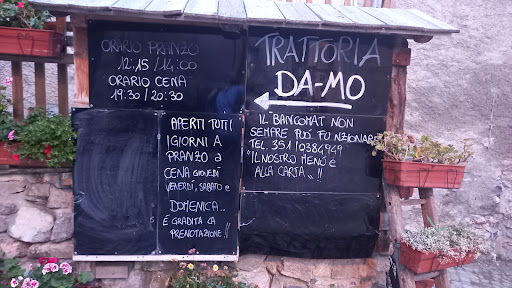 ORARIO PRANZO
12:15 / 14:00
ORARIO CENA
19:30 / 20:30
TRATTORIA
DA-MO
APERTI TUTTI
I GIORNI A
PRANZO E
CENA GIOVEDÌ
VENERDÌ, SABATO E
DOMENICA..
É GRADITA LA
PRENOTAZIONE!!
IL BANCOMAT NON
SEMPRE PUÓ FUNZIONARE
TEL. 351/0384949
"IL NOSTRO MENÚ É
ALLA CARTA"!!